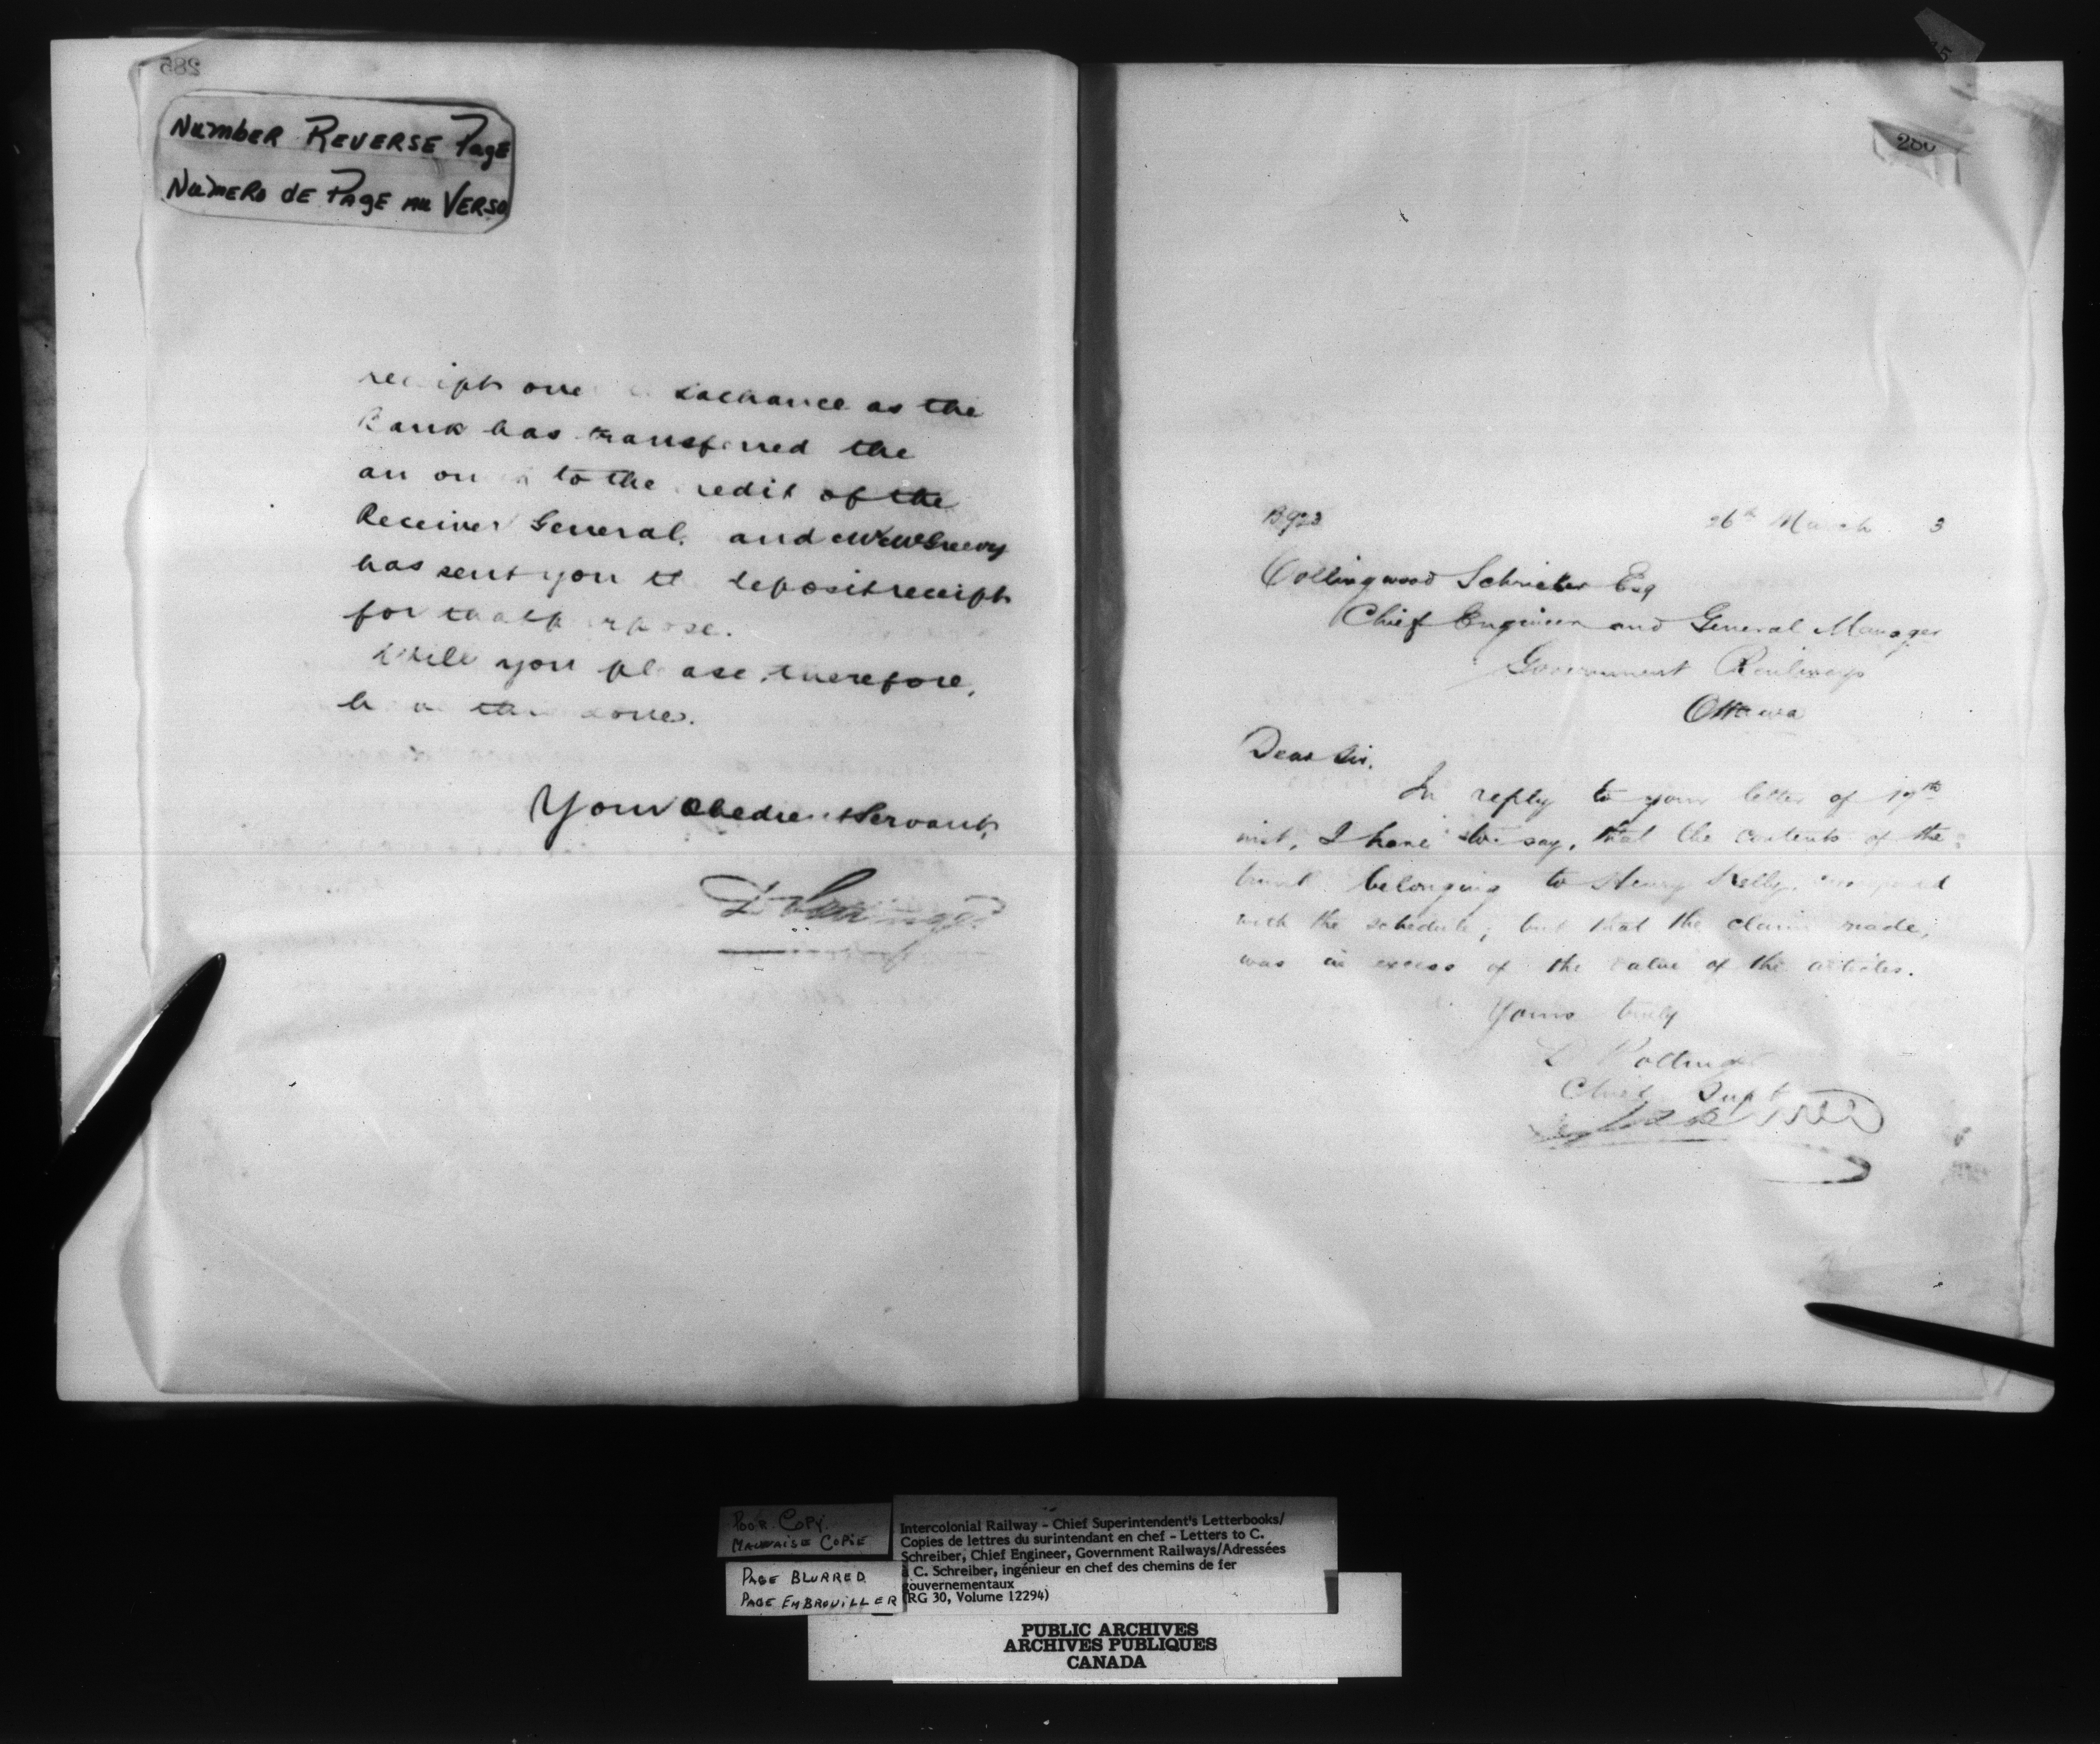 285
Number Reverse Page
Numero de Page au Verso
receipt over exchance as the
Bank has transferred the
to the credit of the
Receiver General. and McGreevy
has sent you deposit receipt
for that purpose.
Will you please, therefore,
have this done.
Your Obedient Servant,
D Pottinger
B923 26th March 3
Collingwood Schrieber Esq
Chief Engineer and General Manager
Government Railways
Ottawa
Dear Sir.
In reply to your letter of 19th
inst, I have to say, that the contents of the
trunk belonging to Henry Kelly,
with the schedule; but that the claim made,
was in excess of the value of the articles.
Yours truly
D Pottinger
Chief Supt
Poor Copy.
Mauvaise Copie
Page Blurred
Page Embrouiller
Intercolonial Railway - Chief Superintendent's Letterbooks/
Copies de lettres du surintendant en chef - Letters to C.
Schreiber, Chief Engineer, Government Railways/Adressées
à C. Schreiber, ingénieur en chef des chemins de fer
gouvernementaux
(RG 30, Volume 12294)
PUBLIC ARCHIVES
ARCHIVES PUBLIQUES
CANADA